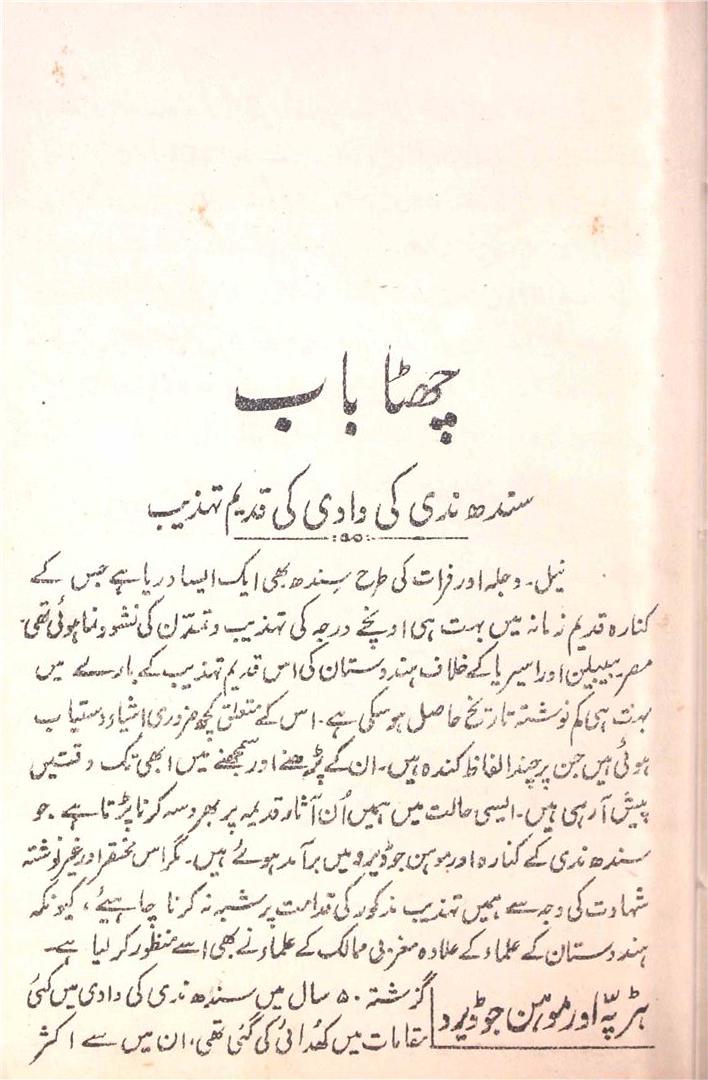 چھٹا باب
سندھ ندی کی وادی کی قدیم تہذیب
نیل۔ دجلہ اور فرات کی طرح سندھ بھی ایک ایسا دریا ہے جس کے
کنارہ قدیم زمانہ میں بہت ہی اونچے درجہ کی تہذیب و تمدّن کی نشوونما ہوئی تھی۔
مصر بیبلین اور اسیریا کے خلاف ہندوستان کی اس قدیم تہذیب کے بارے میں
بہت ہی کم نوشتہ تاریخ حاصل ہوسکی ہے۔ اس کے متعلق کچھ ضروری اشیاء دستیاب
ہوئی ہیں جن پر چند الفاظ کندہ ہیں۔ ان کے پڑھنے اور سمجھنے میں ابھی تک دقتیں
پیش آرہی ہیں۔ ایسی حالت میں ہمیں اُن آثار قدیمہ پر بھروسہ کرنا پڑتا ہے۔ جو
سندھ ندی کے کنارہ اور موہن جوڈیرو میں برآمد ہوئے ہیں۔ مگر اس مختصر اور غیر نوشتہ
شہادت کی وجہ سے ہمیں تہذیب مذکور کی قدامت پر شبہ نہ کرنا چاہیئے، کیونکہ
ہندوستان کے علماء کے علاوہ مغربی ممالک کے علماء نے بھی اسے منظور کر لیا ہے۔
ہڑپہ اور موہن جوڈیرو
گزشتہ ۵۰ سال میں سندھ ندی کی وادی میں کئی
مقامات میں کھدائی کی گئی تھی، ان میں سے اکثر